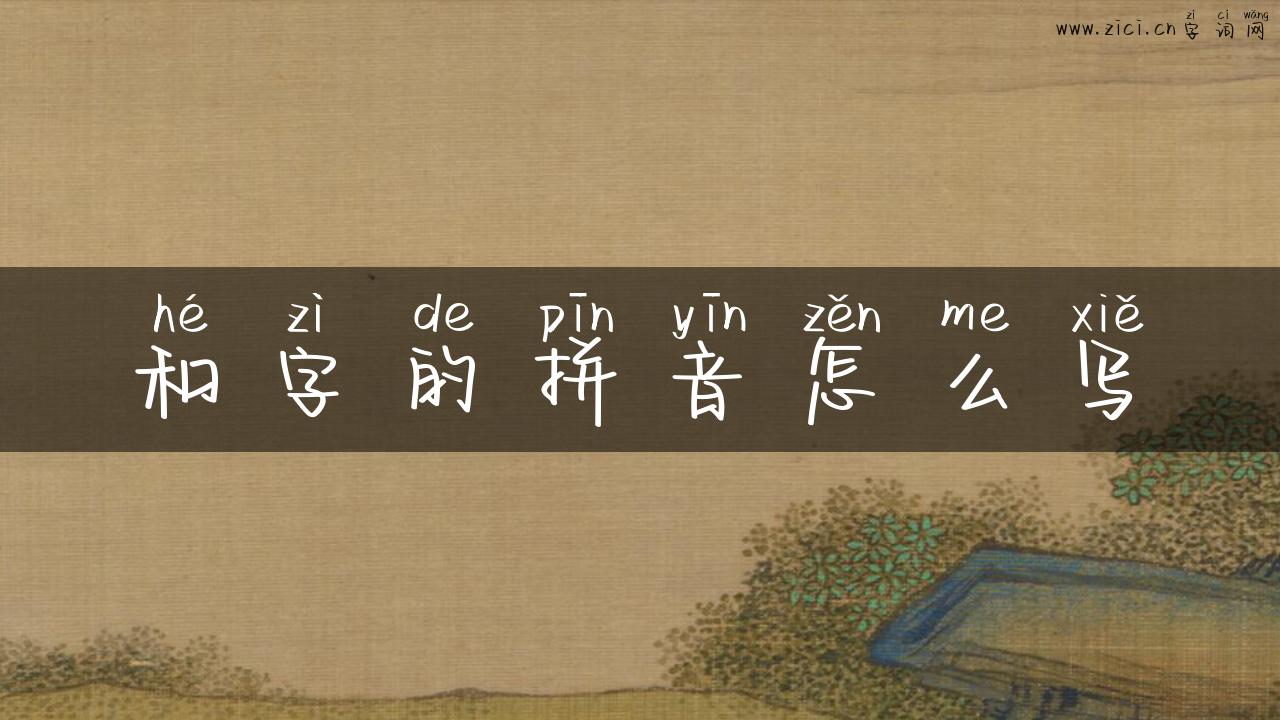 zì cí wǎng
www.zici.cn 字词网
hé zì de pīn yīn zěn me xiě
和字的拼音怎么写